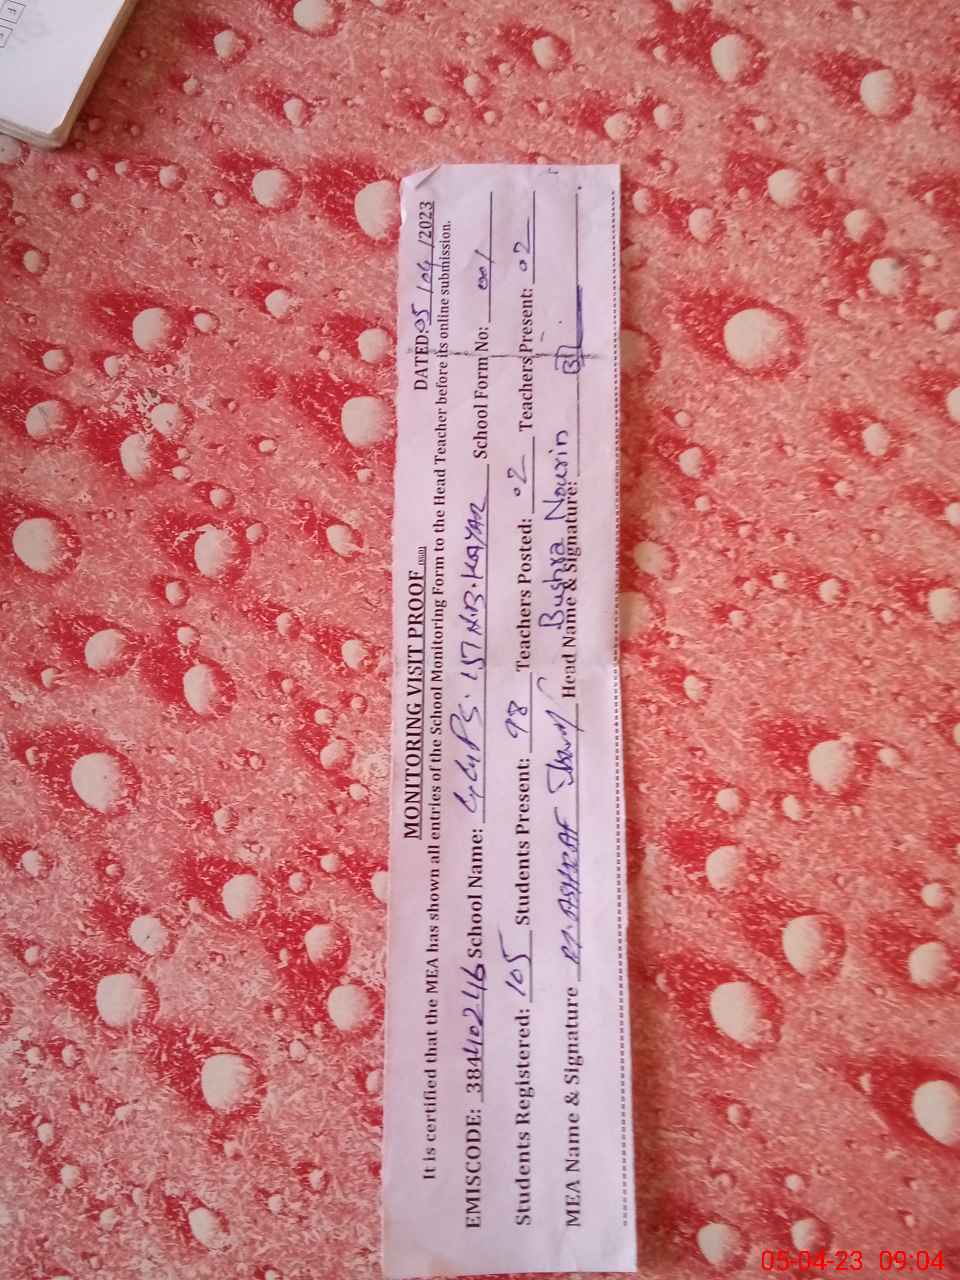 MONITORING VISIT PROOF
DATED: 05/04/2023
It is certified that the MEA has shown all entries of the School Monitoring Form to the Head Teacher before its online submission.
EMISCODE: 38440246 School Name: GGPS. 157 N.B. School Form No: 001
Students Registered: 105 Students Present: 98 Teachers Posted: 02 Teachers Present: 02
MEA Name & Signature M. ASHRAF Head Name & Signature: Bushra Nourin
05-04-23 09:04